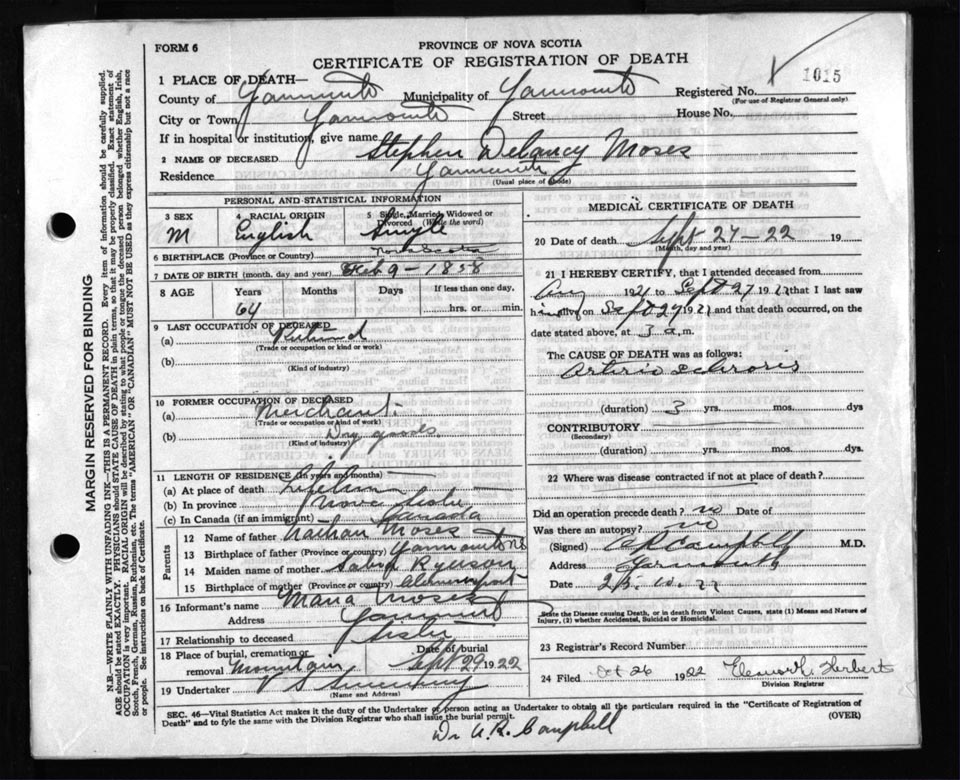 FORM 6
PROVINCE OF NOVA SCOTIA
CERTIFICATE OF REGISTRATION OF DEATH
1015
1 PLACE OF DEATH—
County of Yarmouth Municipality of Yarmouth Registered No.
(For use of Registrar General only)
City or Town Yarmouth Street House No.
If in hospital or institution, give name
2 NAME OF DECEASED Stephen Delancy Moses
Residence Yarmouth
(Usual place of abode)
PERSONAL AND STATISTICAL INFORMATION
3 SEX M
4 RACIAL ORIGIN English
5 Single, Married, Widowed or Divorced (Write the word) Single
6 BIRTHPLACE (Province or Country) Nova Scotia
7 DATE OF BIRTH (month, day and year) Feb 9 - 1858
8 AGE Years Months Days If less than one day,
64 hrs. or min.
9 LAST OCCUPATION OF DECEASED
(a) Retired
(Trade or occupation or kind or work)
(b)
(Kind of industry)
10 FORMER OCCUPATION OF DECEASED
(a) Merchant
(Trade or occupation or kind of work)
(b) Dry goods
(Kind of industry)
11 LENGTH OF RESIDENCE (in years and months)
(a) At place of death Lifetime
(b) In province Nova Scotia
(c) In Canada (if an immigrant) Canada
Parents
12 Name of father Nathan Moses
13 Birthplace of father (Province or country) Yarmouth NS
14 Maiden name of mother Sabra
15 Birthplace of mother (Province or country)
16 Informant's name Maria Moses
Address Yarmouth
17 Relationship to deceased Sister
18 Place of burial, cremation or removal Mountain
Date of burial Sept 29 1922
19 Undertaker V S Sweeney
(Name and Address)
MEDICAL CERTIFICATE OF DEATH
20 Date of death Sept 27-22 19
(Month, day and year)
21 I HEREBY CERTIFY, that I attended deceased from
Aug 1921 to Sept 27 1922 that I last saw
h alive on Sept 27 1922 and that death occurred, on the
date stated above, at 3 a.m.
The CAUSE OF DEATH was as follows:
Arterio Sclerosis
(duration) 3 yrs. mos. dys
CONTRIBUTORY
(Secondary)
(duration) yrs. mos. dys.
22 Where was disease contracted if not at place of death?
Did an operation precede death? no Date of
Was there an autopsy? no
(Signed) A R Campbell M.D.
Address Yarmouth
Date 2 10. 22
State the Disease causing Death, or in death from Violent Causes, state (1) Means and Nature of Injury, (2) whether Accidental, Suicidal or Homicidal.
23 Registrar's Record Number
24 Filed Oct 26 1922 Herbert
Division Registrar
SEC. 46—Vital Statistics Act makes it the duty of the Undertaker or person acting as Undertaker to obtain all the particulars required in the "Certificate of Registration of
Death" and to fyle the same with the Division Registrar who shall issue the burial permit. (OVER)
Dr A.R. Campbell
MARGIN RESERVED FOR BINDING
N.B.—WRITE PLAINLY WITH UNFADING INK—THIS IS A PERMANENT RECORD. Every item of information should be carefully supplied.
AGE should be stated EXACTLY. PHYSICIANS should STATE CAUSE OF DEATH in plain terms, so that it may be properly classified. Exact statement of
OCCUPATION is very important. RACIAL ORIGIN will be described by stating to what people or tongue the deceased person belonged whether English, Irish,
Scotch, French, German, Russian, Ruthenian, etc. The terms "AMERICAN" OR "CANADIAN" MUST NOT BE USED as they express citizenship but not a race
or people. See instructions on back of Certificate.